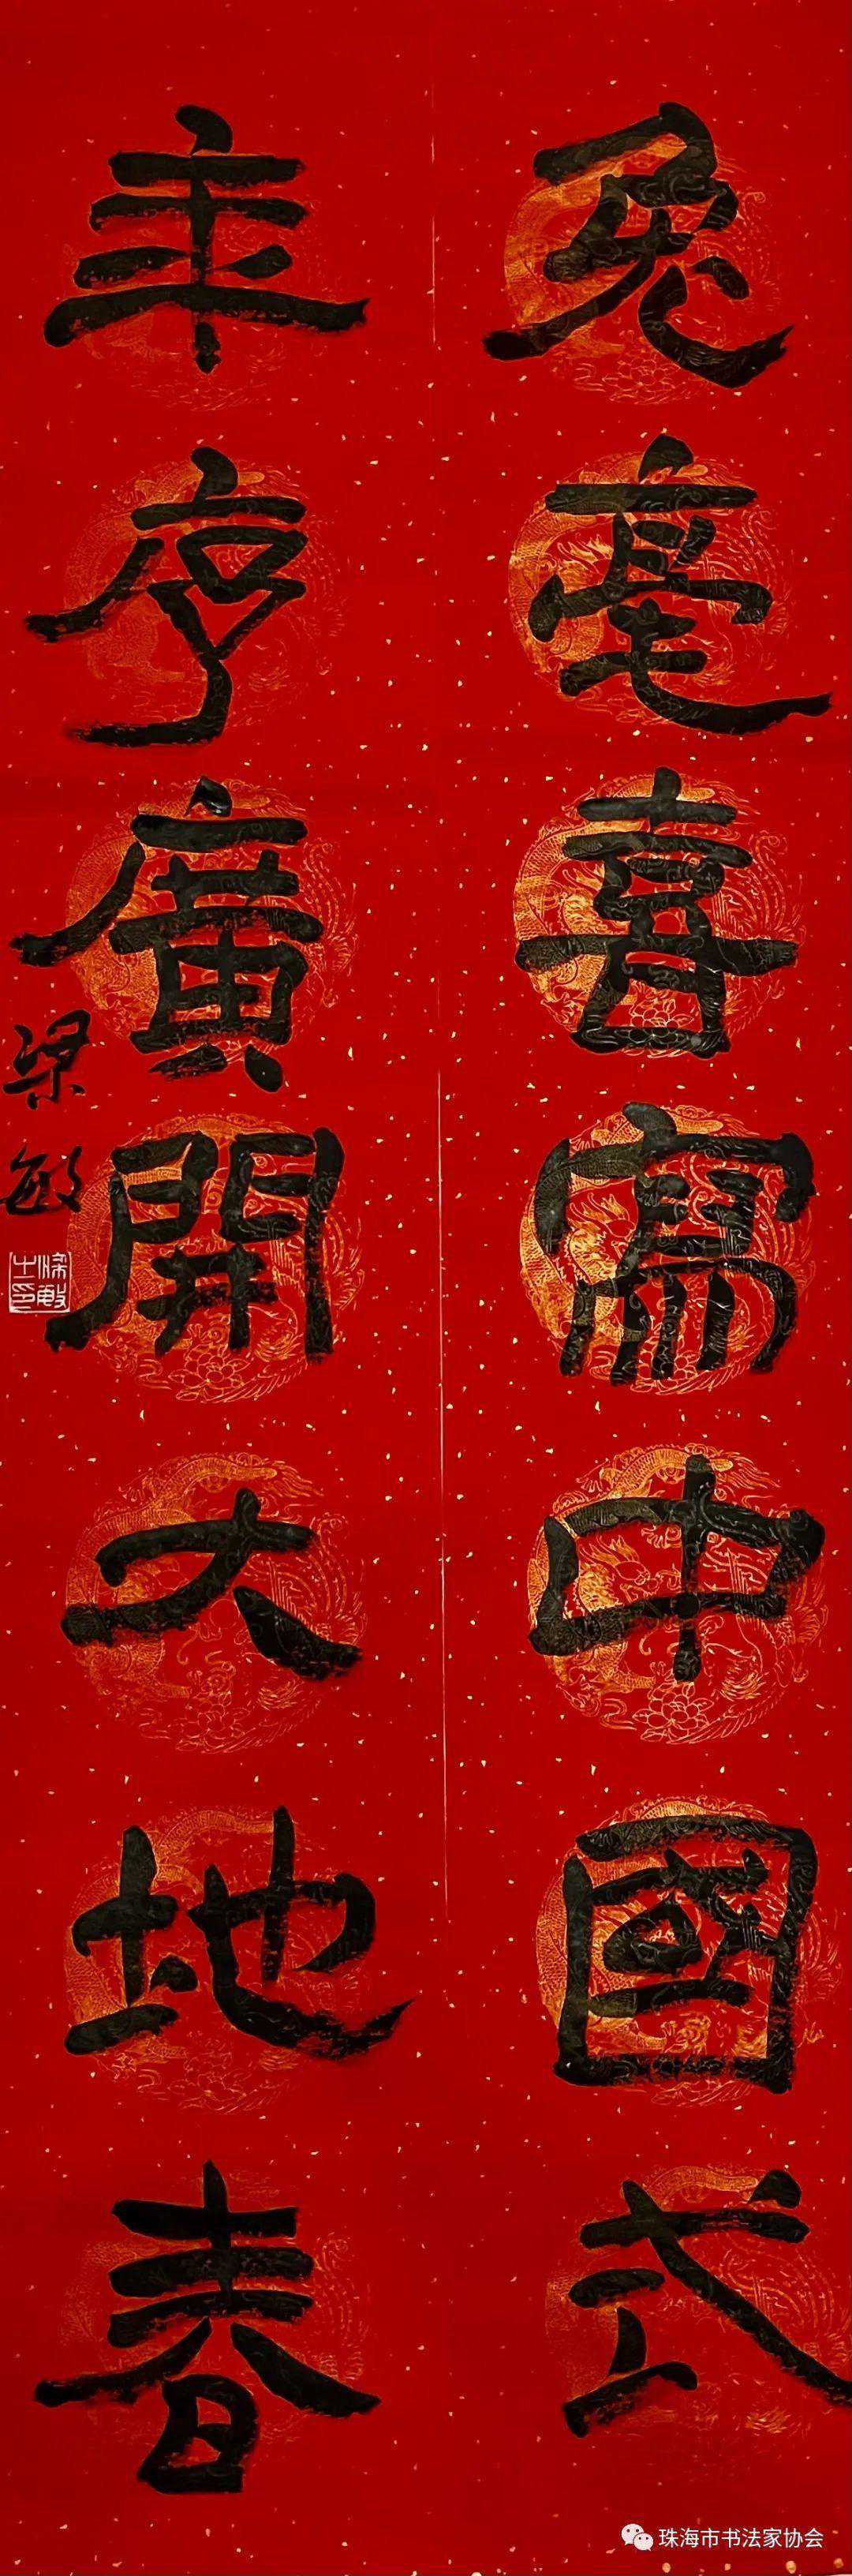 兎毫喜寫中國式
年序廣開大地春
梁敏
珠海市书法家协会